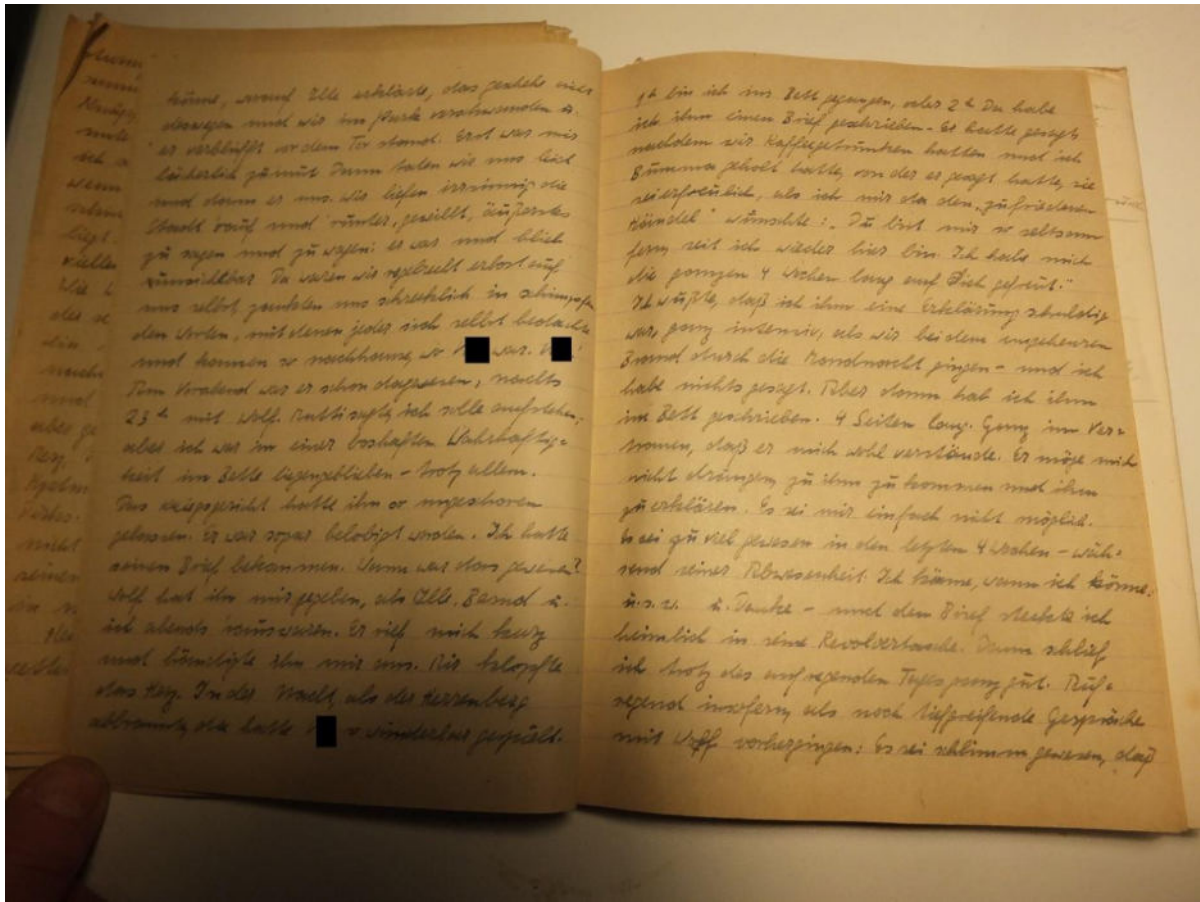 könne, worauf Ille erklärte, das geschehe nur
deswegen und wir im Park verschwanden u.
er verblüfft vor dem Tor stand. Erst war mir
lächerlich zumut. Dann taten wir uns leid
und dann er uns. Wir liefen irrsinnig die
Stadt rauf und runter, gewillt, äußerstes
zu sagen und zu wagen: er war und blieb
unsichtbar. Da waren wir regelrecht erbost auf
uns selbst schrecklich in
den Worten, mit denen jeder sich selbst bedachte
und kamen so nachhause, wo war.
Am Vorabend war er schon dagewesen, nachts
23 h mit Wolf. Mutti sagte, ich solle aufstehen,
aber ich war in einer boshaften Wahrhaftig=
keit im Bette liegengeblieben - trotz allem.
Das Kriegsgericht hatte ihn so ungeschoren
gelassen. Er war sogar belobigt worden. Ich hatte
seinen Brief bekommen. Wann war das gewesen?
Wolf hat ihn mir gegeben, als Ille, Bernd u.
ich abends raus waren. Er rief mich kurz
und händigte ihn mir aus. Mir klopfte
das Herz. In der Nacht, als der Herrenberg
abbrannte, da hatte so wunderbar gespielt.
1 h bin ich ins Bett gegangen, oder 2 h. Da habe
ich ihm einen Brief geschrieben. Er hatte gesagt,
nachdem wir Kaffee getrunken hatten und ich
Bumma geholt hatte, von der er gesagt hatte, sie
sei erfreulich, als ich mir da den „zufriedenen
wünschte: „Du bist mir so seltsam
fern, seit ich wieder hier bin. Ich habe mich
die ganzen 4 Wochen lang auf Dich gefreut."
Ich wußte, daß ich ihm eine Erklärung schuldig
war, ganz intensiv, als wir bei dem ungeheuren
Brand durch die Mondnacht gingen - und ich
habe nichts gesagt. Aber dann hab ich ihm
im Bett geschrieben. 4 Seiten lang. Ganz im Ver=
trauen, daß er mich wohl verstände. Er möge mich
nicht drängen, zu ihm zu kommen und ihm
zu erklären. Es sei mir einfach nicht möglich.
Es sei zu viel gewesen in den letzten 4 Wochen - wäh=
rend seiner Abwesenheit. Ich käme, wenn ich könne.
u.s.w. u. Danke - und den Brief steckte ich
heimlich in seine Revolvertasche. Dann schlief
ich trotz des aufregenden Tages ganz gut. Auf=
regend insofern, als noch tiefgreifende Gespräche
mit Wolf vorhergingen: Es sei schlimm gewesen, daß